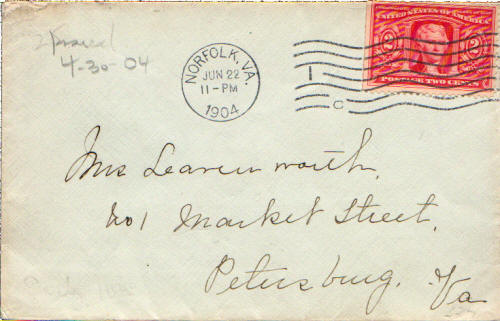 4-30-04
NORFOLK, VA.
JUN 22
11-PM
1904
1
C
UNITED STATES OF AMERICA
2 2
POSTAGE TWO CENTS
Mrs Leavenworth,
No 1 Market Street,
Petersburg. Va